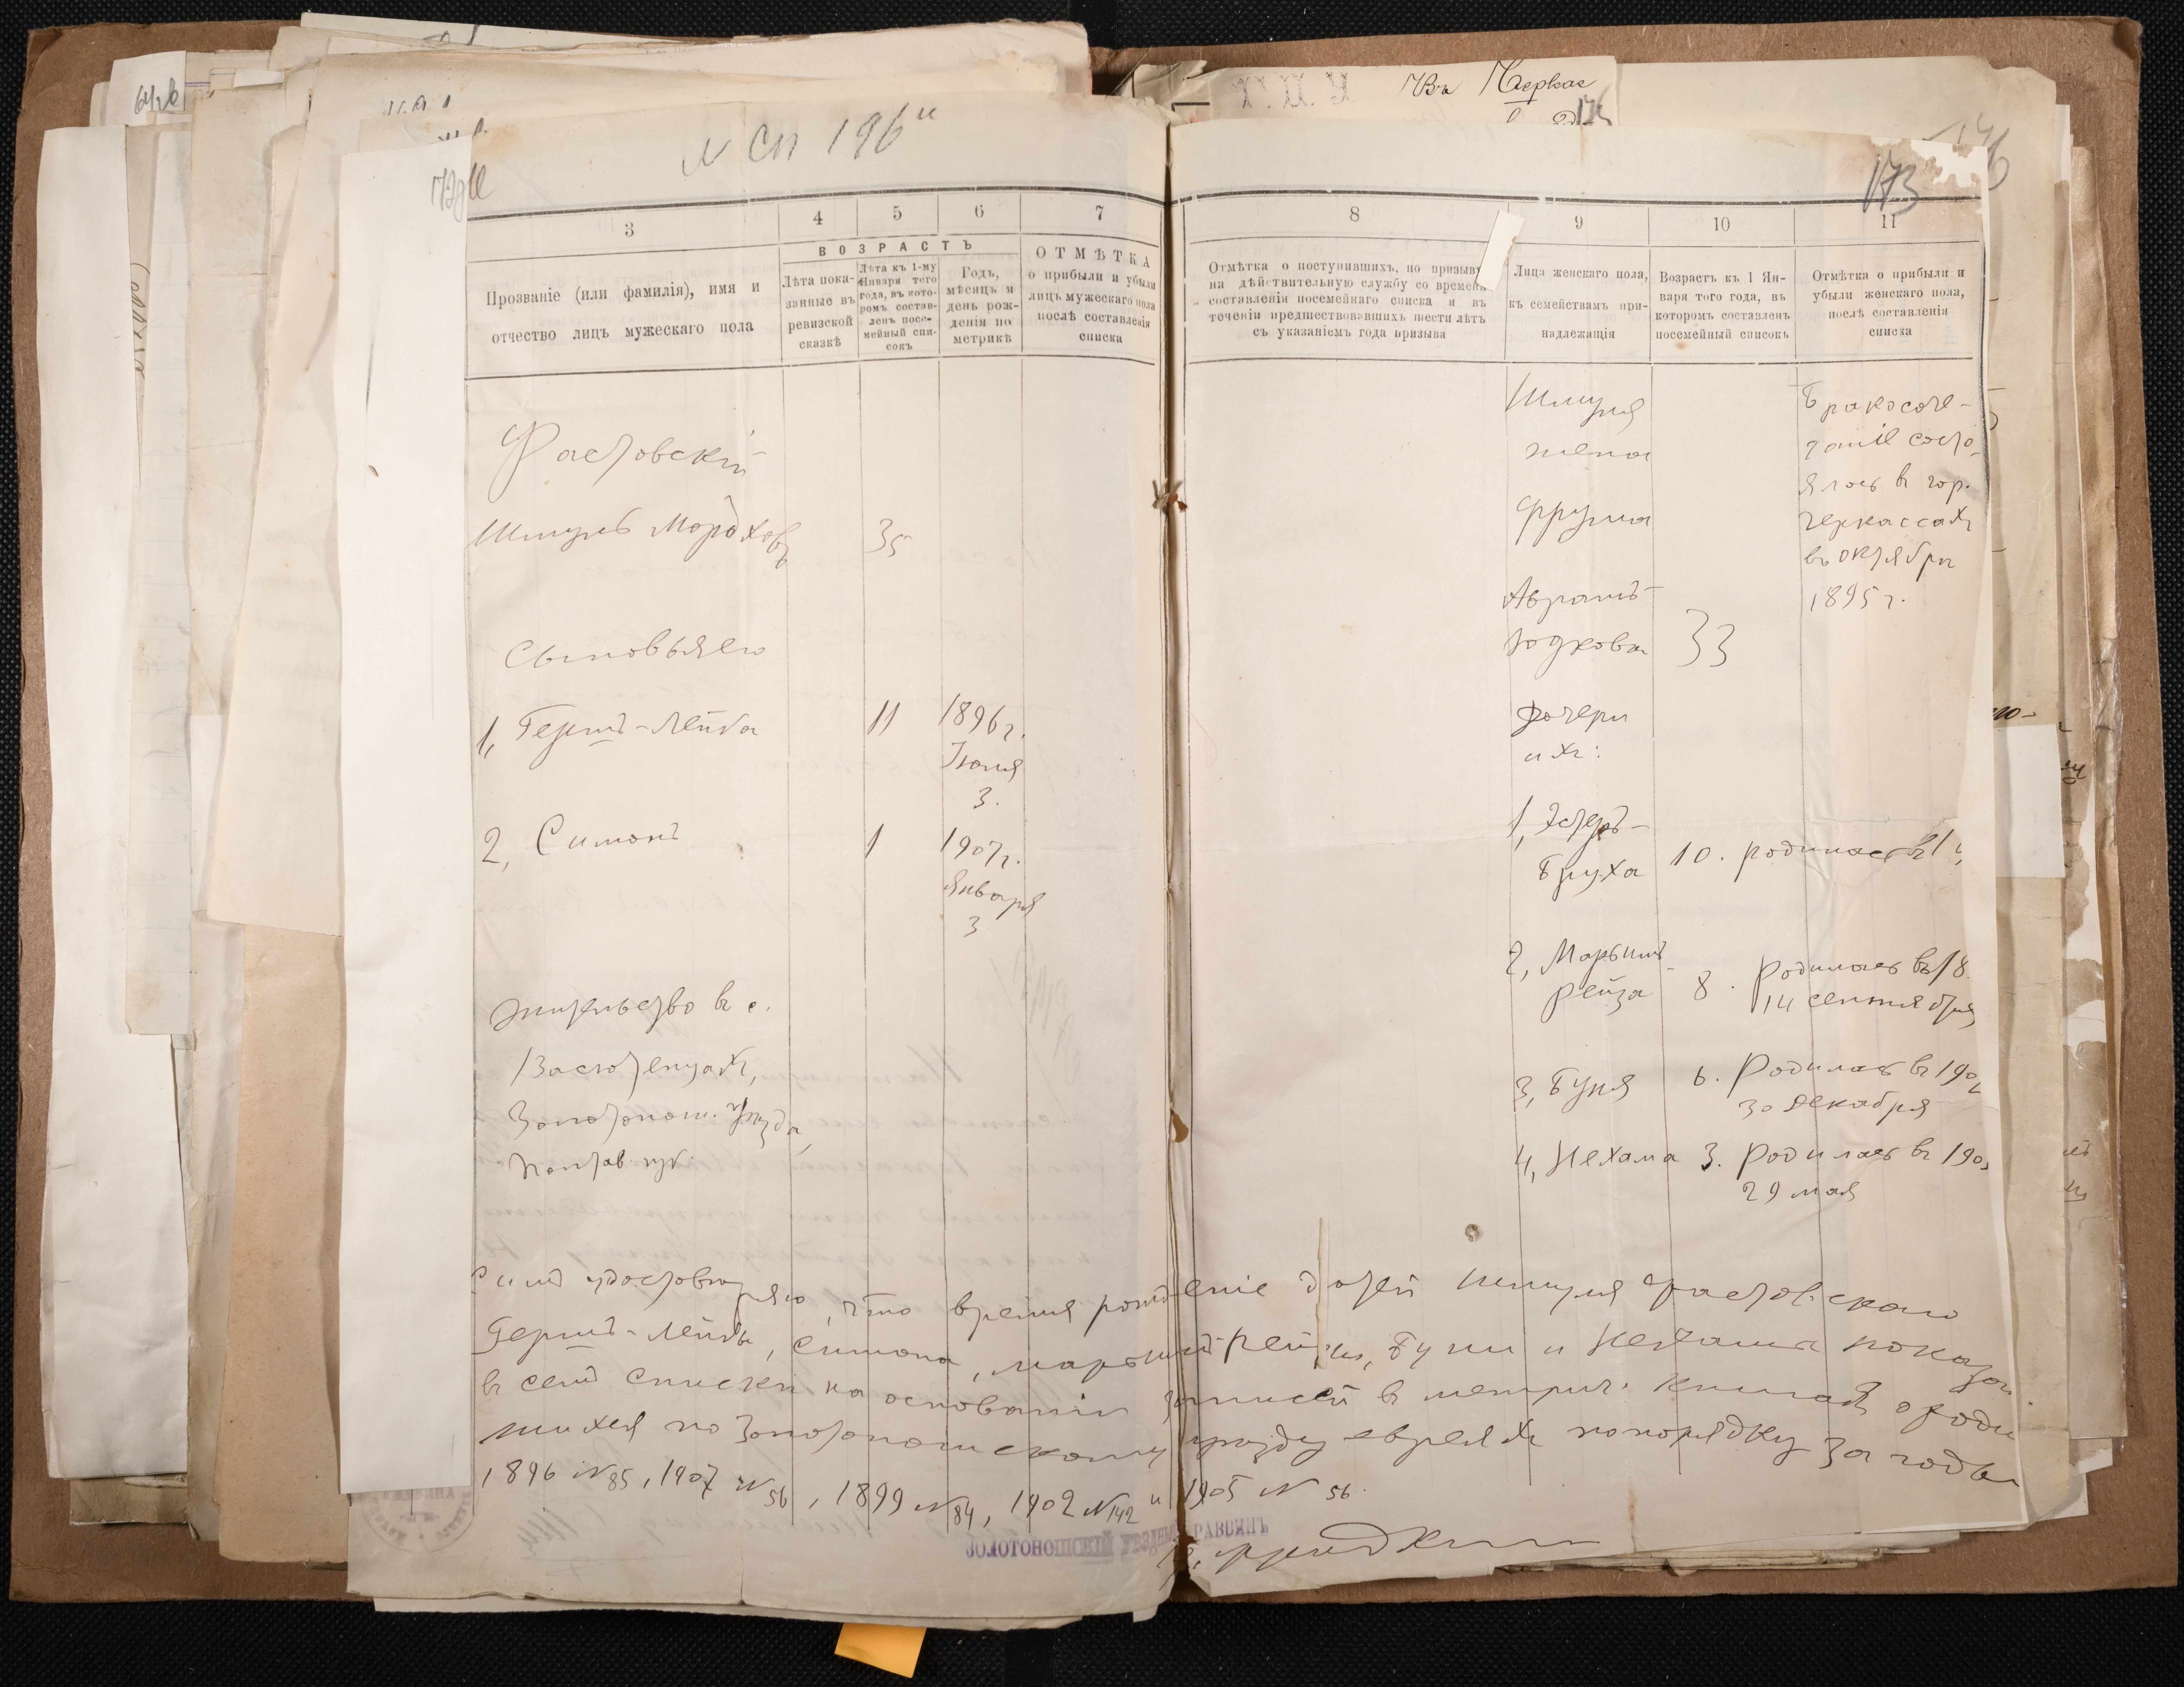 № СП 196
173
3
4
5
6
7
8
9
10
11
ВОЗРАСТЪ
Прозваніе (или фамилія), имя и
отчество лицъ мужескаго пола
Лѣта пока-
занные въ
ревизской
сказкѣ
Лѣта къ 1-му
Января того
года, въ кото-
ромъ состав-
ленъ посе-
мейный спи-
сокъ
Годъ,
мѣсяцъ и
день рож-
денія по
метрикѣ
ОТМѢТКА
о прибыли и убыли
лицъ мужескаго пола
послѣ составленія
списка
Отмѣтка о поступившихъ, по призыву
на дѣйствительную службу со времени
составленія посемейнаго списка и въ
теченіи предшествовавшихъ шести лѣтъ
съ указаніемъ года призыва
Лица женскаго пола,
къ семействамъ при-
надлежащія
Возрастъ къ 1 Ян-
варя того года, въ
которомъ составленъ
посемейный списокъ
Отмѣтка о прибыли и
убыли женскаго пола,
послѣ составленія
списка
Фастовскій
Шмуль Мордхов 35
Сыновья его
1, Гершъ-Лейба 11 1896 г.
Іюля
3.
2, Симонъ 1 1907 г.
Января
3
Жительство въ с.
Золотонош. уѣзда,
Полтав. губ.
Шмуля
жена
Фрума
Аврамъ-
Юдкова 33
Бракосоче-
таніе состо-
ялось въ гор.
Черкассахъ
въ октябрѣ
1895 г.
Дочери
ихъ:
1, Эстеръ-
Бруха 10. родилась
2, Марьимъ
Рейза 8. Родилась въ 18
14 сентября
3, Буня 6. Родилась въ 190
30 декабря
4, Нехама 3. Родилась въ 190
29 мая
Симъ удостовѣряю, что время рожденіе дѣтей Шмуля Фастовскаго
Гершъ-Лейбы, Симона, Марьимъ-Рейзы, Буни и Нехамы показан
въ семъ спискѣ на основаніи записей въ метрич. книгахъ о роди
шихся по Золотоношскому уѣзду евреяхъ по порядку за годы
1896 № 85, 1907 № 56, 1899 № 84, 1902 № 142 и 1905 № 56.
ЗОЛОТОНОШСКІЙ УѢЗДНЫЙ РАВВИНЪ